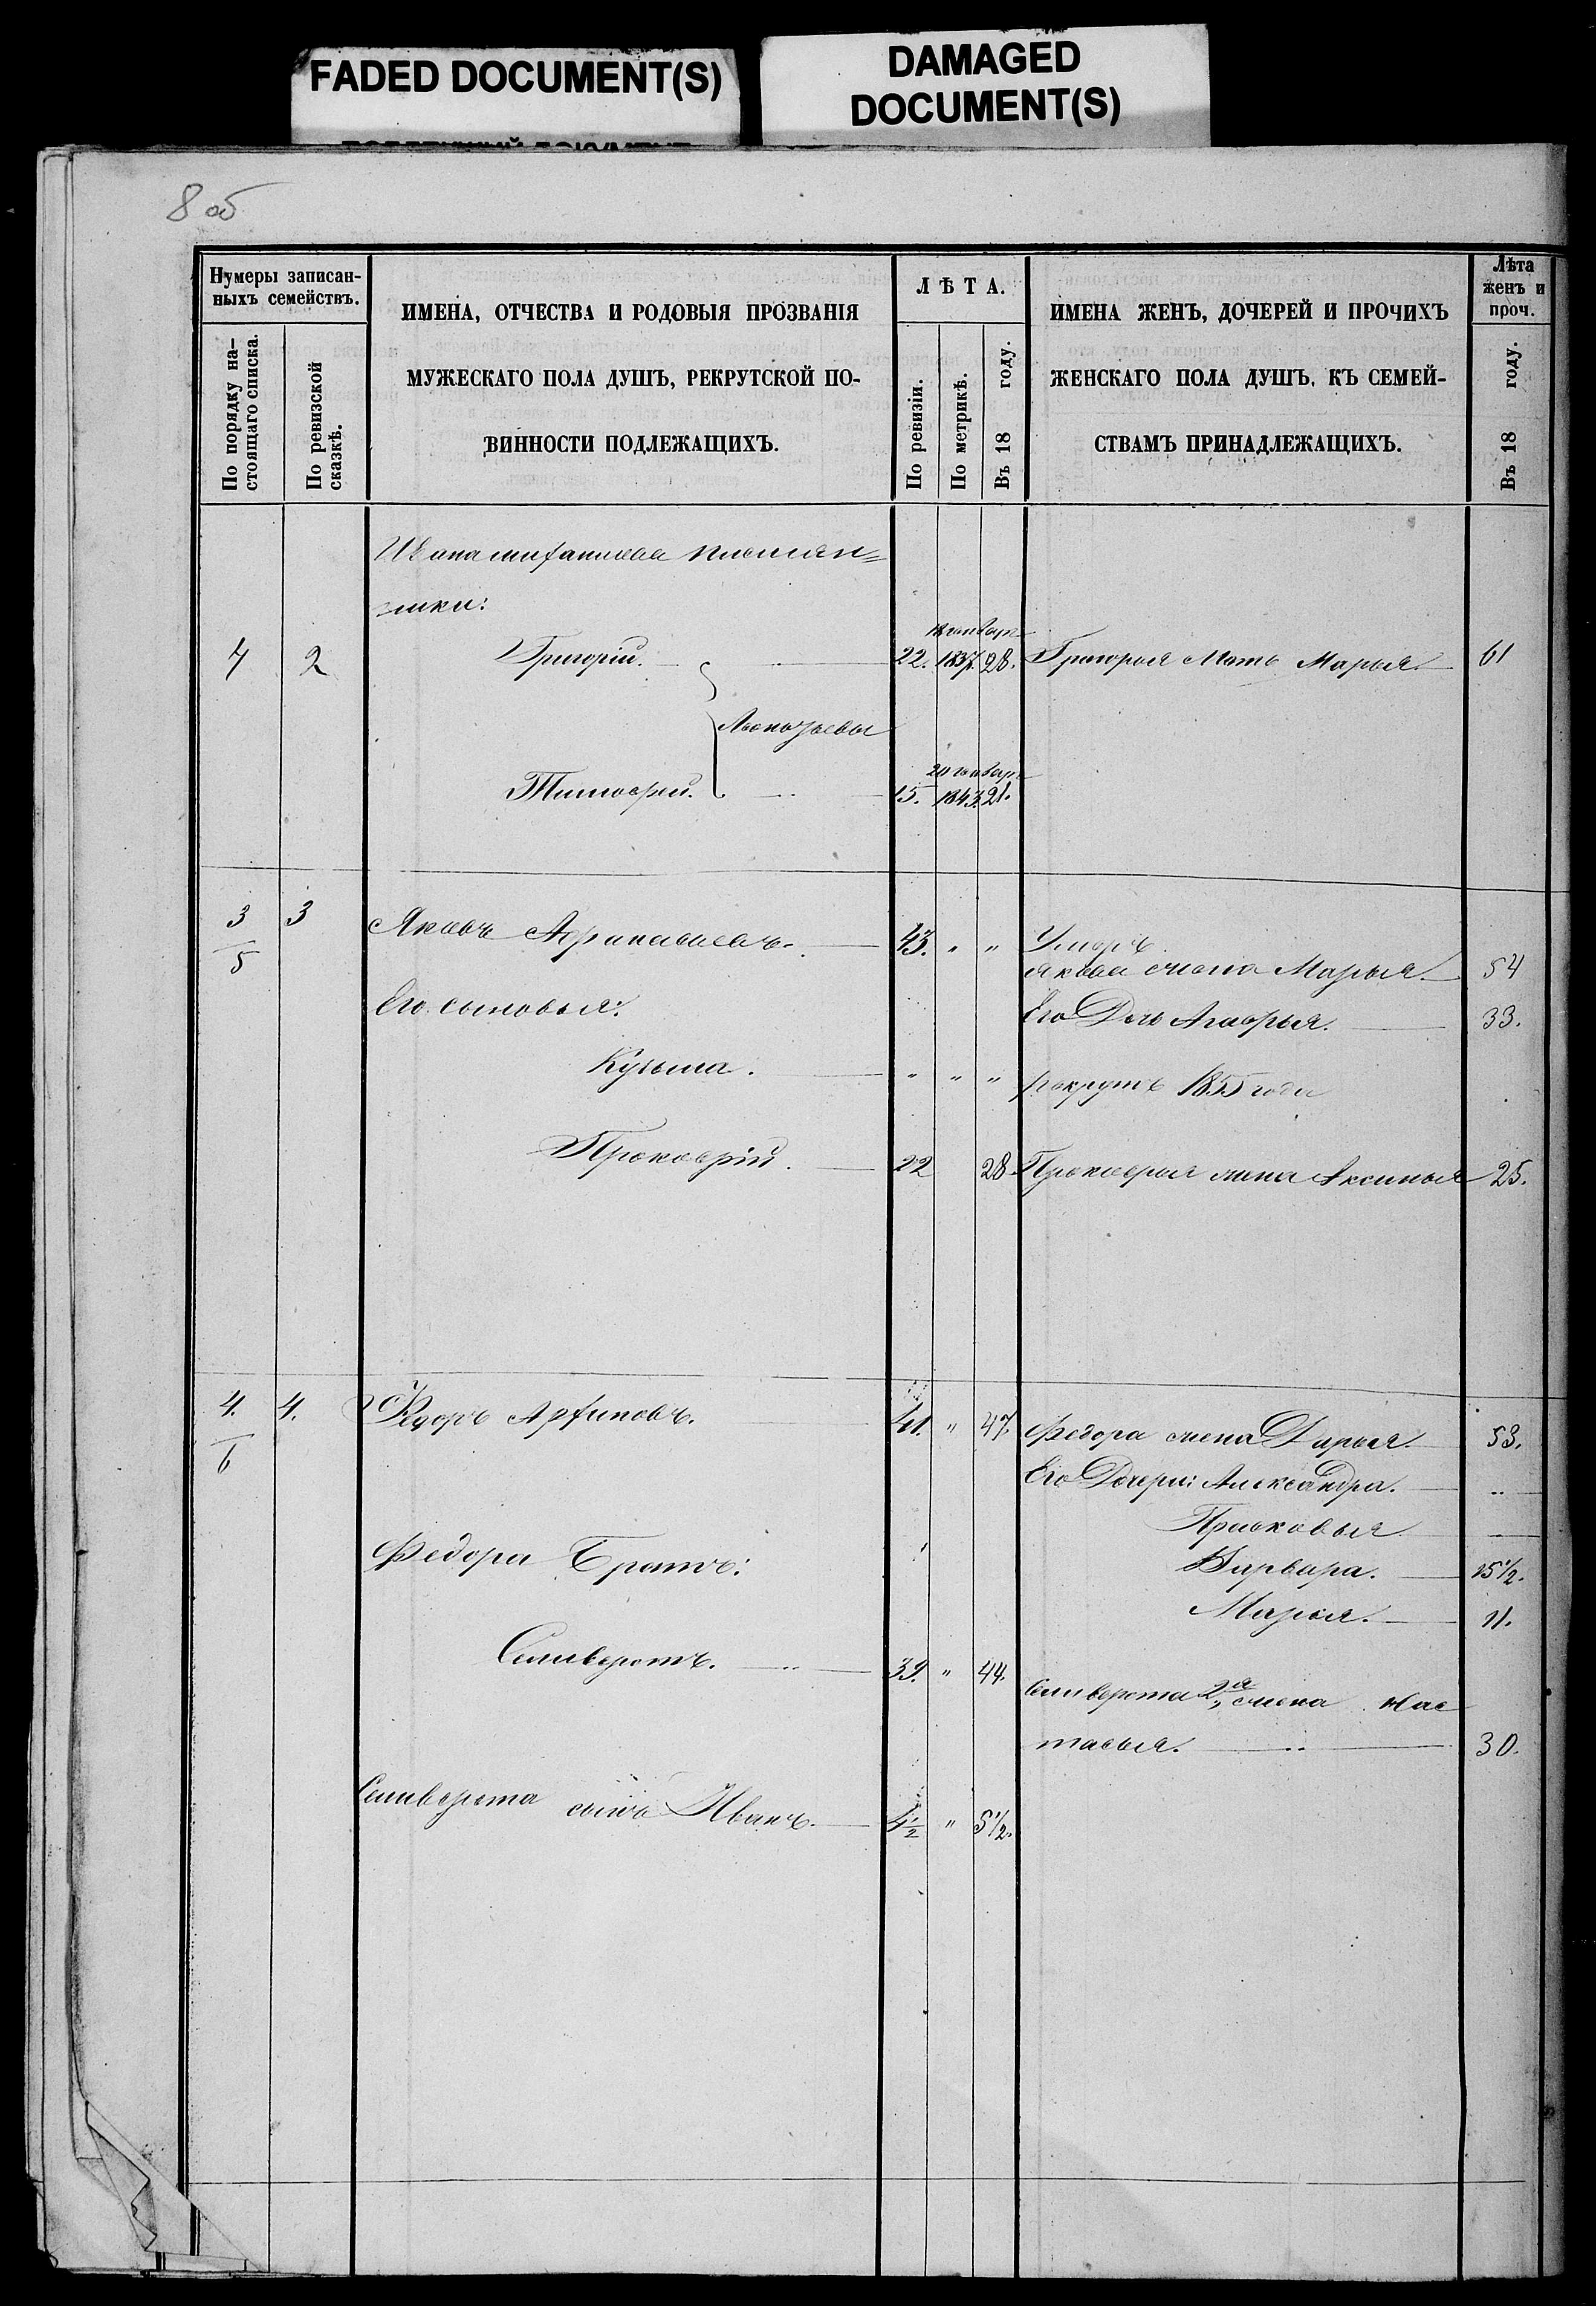 FADED DOCUMENT(S)
DAMAGED
DOCUMENT(S)
8 об
Нумеры записан-
ныхъ семействъ.
По порядку на-
стоящаго списка.
По ревизской
сказкѣ.
ИМЕНА, ОТЧЕСТВА И РОДОВЫЯ ПРОЗВАНІЯ
МУЖЕСКАГО ПОЛА ДУШЪ, РЕКРУТСКОЙ ПО-
ВИННОСТИ ПОДЛЕЖАЩИХЪ.
ЛѢТА.
По ревизіи.
По метрикѣ.
Въ 18 году.
ИМЕНА ЖЕНЪ, ДОЧЕРЕЙ И ПРОЧИХЪ
ЖЕНСКАГО ПОЛА ДУШЪ, КЪ СЕМЕЙ-
СТВАМЪ ПРИНАДЛЕЖАЩИХЪ.
Лѣта
женъ и
проч.
Въ 18 году.
Ивана племян=
ники:
4 2 Григорій. 22. 18 января 1837. 28. Григорья Мать Марья. 61
Тимофей. 15. 20 января 1843. 21.
3/5 3 Яковъ 43. " " Умеръ
Якова жена Марья. 54
Его сыновья: Его Дочь 33.
Кузьма. " " " рекрутъ 1855 года
Прокофій. 22 28 Прокофья жена Аксинья 25.
4./6 4. Федоръ Архиповъ. 41. " 47. Федора жена Дарья. 53.
Его Дочери: Александра. "
Прасковья
Федора Братъ: Варвара. 15½.
Марья. 11.
Селиверстъ. 39. " 44.
Селиверста 2я жена Нас
тасья. 30.
Селиверста сынъ Иванъ. 4½ " 5½.